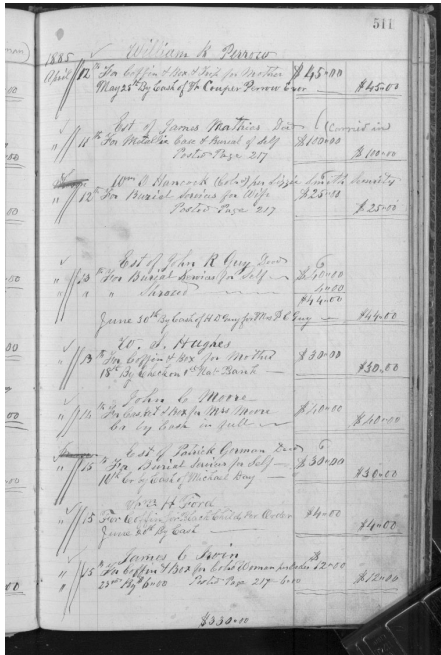 511
1885 William K Perrow
April 12th For Coffin & Box & Trip for Mother $45.00
May 25th By Cash of Couper Perrow $45.00
Est of James Mathies Decd (Carried in)
" 11th For Metallic Case & Burial of Self $100.00
Posted Page 217 $100.00
Wm O Hancock (Cold) per Lizzie
" 12th For Burial Services for Wife $25.00
Posted Page 217 $25.00
Est of John R Guy Decd
" 13th For Burial Services for Self $40.00
" " Shroud 4.00
$44.00
June 30th By Cash of H D Guy for Mrs P C Guy $44.00
Hughes
" 13th For Coffin & Box for Mother $30.00
18th By Check on 1st Nat Bank $30.00
John C Moore
" 14th For Casket & Box for Mrs Moore $40.00
Cr by Cash in full $40.00
Est of Patrick Gorman Decd
" 15th For Burial Services for Self $30.00
16th Cr by Cash of Michael Day $30.00
H Ford
" 15 For Coffin for Black Child Per Order $4.00
June 30th By Cash $4.00
James C Irvin
" 15th For Coffin & Box for Cold Woman per Order $12.00
" 23rd By $6.00 Posted Page 217 6.00 $12.00
$330.00